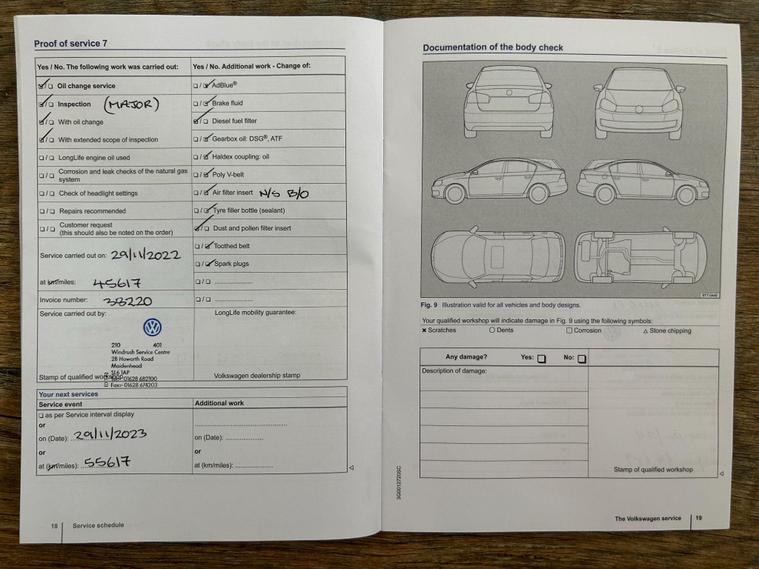 Proof of service 7
Yes / No. The following work was carried out:
Oil change service
Inspection (MAJOR)
With oil change
With extended scope of inspection
LongLife engine oil used
Corrosion and leak checks of the natural gas
system
Check of headlight settings
Repairs recommended
Customer request
(this should also be noted on the order)
Service carried out on: 29/11/2022
at km/miles: 45617
Invoice number: 38220
Service carried out by:
210 401
Windrush Service Centre
28 Howorth Road
Maidenhead
SL6 1AP
Tel: 01628 682100
Fax: 01628 674203
Stamp of qualified workshop
Yes / No. Additional work - Change of:
AdBlue®
Brake fluid
Diesel fuel filter
Gearbox oil: DSG®, ATF
Haldex coupling: oil
Poly V-belt
Air filter insert N/S B/O
Tyre filler bottle (sealant)
Dust and pollen filter insert
Toothed belt
Spark plugs
LongLife mobility guarantee:
Volkswagen dealership stamp
Your next services
Service event
as per Service interval display
or
on (Date): 29/11/2023
or
at (km/miles): 55617
Additional work
on (Date):
or
at (km/miles):
18 Service schedule
Documentation of the body check
Fig. 9 Illustration valid for all vehicles and body designs.
Your qualified workshop will indicate damage in Fig. 9 using the following symbols:
Scratches Dents Corrosion Stone chipping
Any damage? Yes: No:
Description of damage:
Stamp of qualified workshop
The Volkswagen service 19